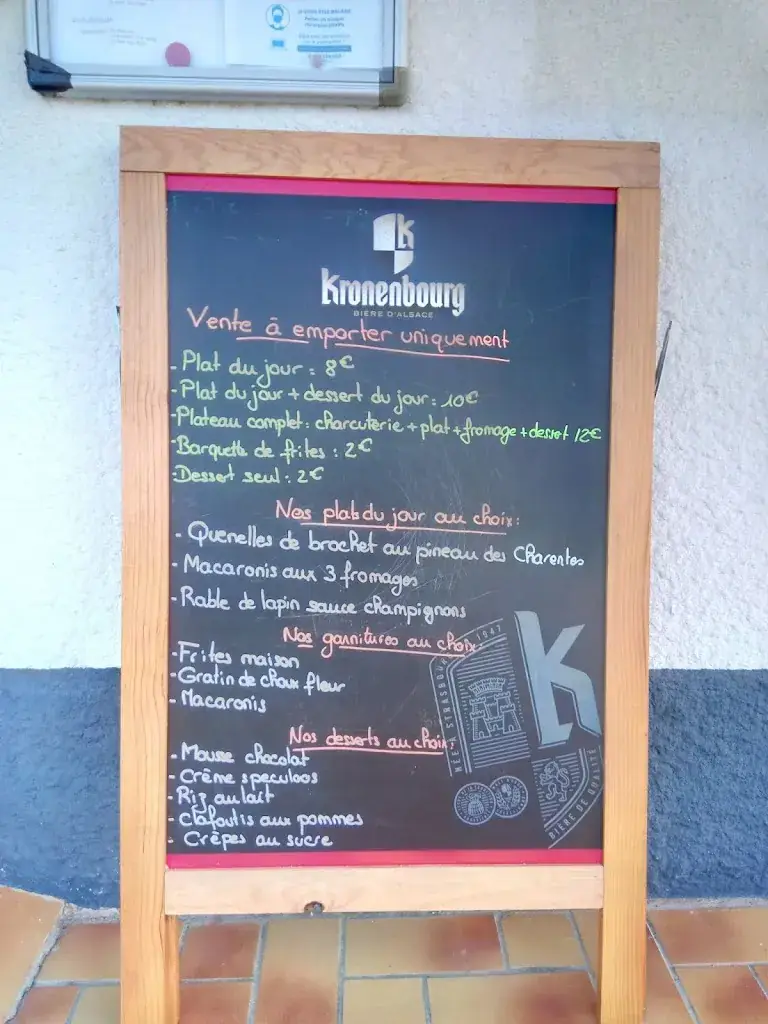 Kronenbourg
BIÈRE D'ALSACE
Vente à emporter uniquement
- Plat du jour : 8€
- Plat du jour + dessert du jour : 10€
- Plateau complet : charcuterie + plat + fromage + dessert 12€
- Barquette de frites : 2€
- Dessert seul : 2€
Nos plats du jour au choix :
- Quenelles de brochet au pineau des Charentes
- Macaronis aux 3 fromages
- Rable de lapin sauce champignons
Nos garnitures au choix :
- Frites maison
- Gratin de choux fleur
- Macaronis
Nos desserts au choix :
- Mousse chocolat
- Crème speculoos
- Riz au lait
- Clafoutis aux pommes
- Crêpes au sucre
NÉE À STRASBOURG
1947
K
BIÈRE DE QUALITÉ